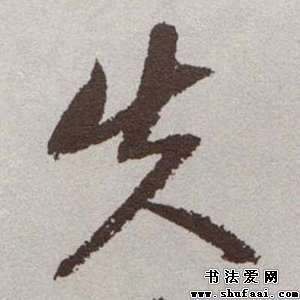 失
书法爱网
www.shufaai.com